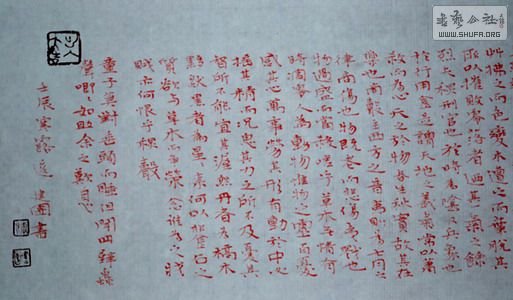 草拂之而色變木遭之而葉脫其
所以摧敗零落者迺其氣餘
烈夫秋刑官也於時為陰又兵象也
於行用金是謂天地之義氣常以肅
殺而為心天之於物春生秋實故其在
樂也商聲主西方之音夷則為七月之
律商傷也物既老而悲傷夷戮也
物過盛而當殺嗟乎草木無情有
時飄零人為動物惟物之靈百憂
感其心萬事勞其形有動於中必
搖其精而況思其力之所不及憂其
智所不能宜其渥然丹者為槁木
黟然黑者為星星奈何以非金石之
質欲與草木而爭榮念誰為之戕
賊亦何恨乎秋聲
童子莫對垂頭而睡但聞四壁蟲
聲唧唧如助余之歎息
壬辰寒露 建國書
書藝公社
WWW.SHUFA.ORG